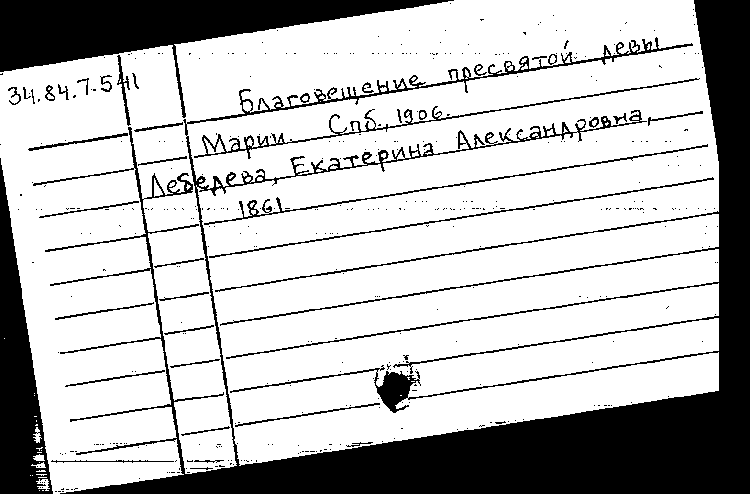 34.84.7.541
Благовещение пресвятой девы
Марии. Спб., 1906.
Лебедева, Екатерина Александровна,
1861